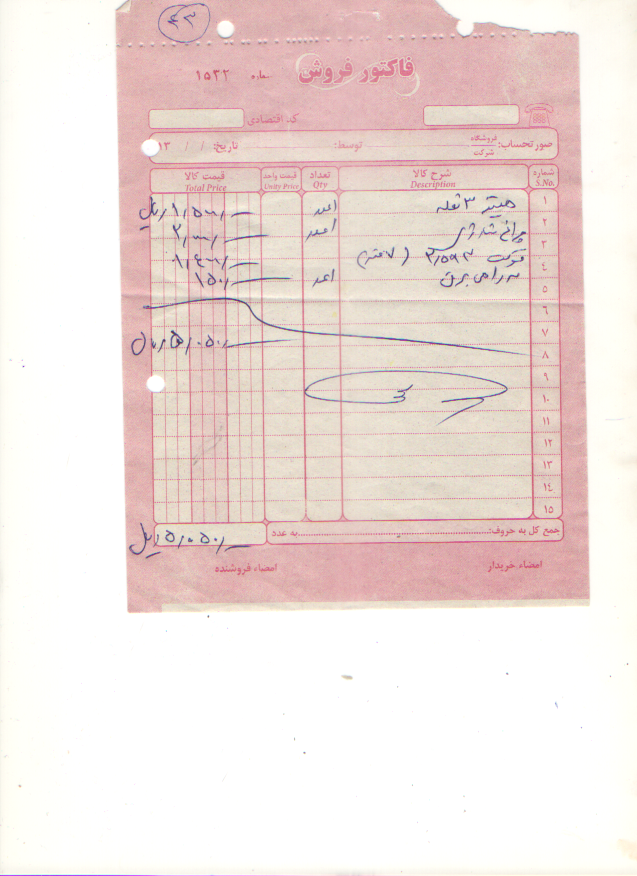 ۴۳
فاکتور فروش
شماره ۱۵۳۲
کد اقتصادی
صورتحساب: فروشگاه شرکت توسط: تاریخ: / / ۱۳
شماره S.No. شرح کالا Description تعداد Qty قیمت واحد Unity Price قیمت کالا Total Price
۱ هیتر ۳ شعله ۱عدد ۱,۵۰۰,۰۰۰ ریال
۲ چراغ شارژی ۱عدد
۳ موکت
۴ سه راهی برق ۱عدد ۱۵۰,۰۰۰
۵
۶
۷ ۵,۰۵۰,۰۰۰ ریال
۸
۹
۱۰
۱۱
۱۲
۱۳
۱۴
۱۵
جمع کل به حروف: به عدد ۵,۰۵۰,۰۰۰ ریال
امضاء خریدار امضاء فروشنده